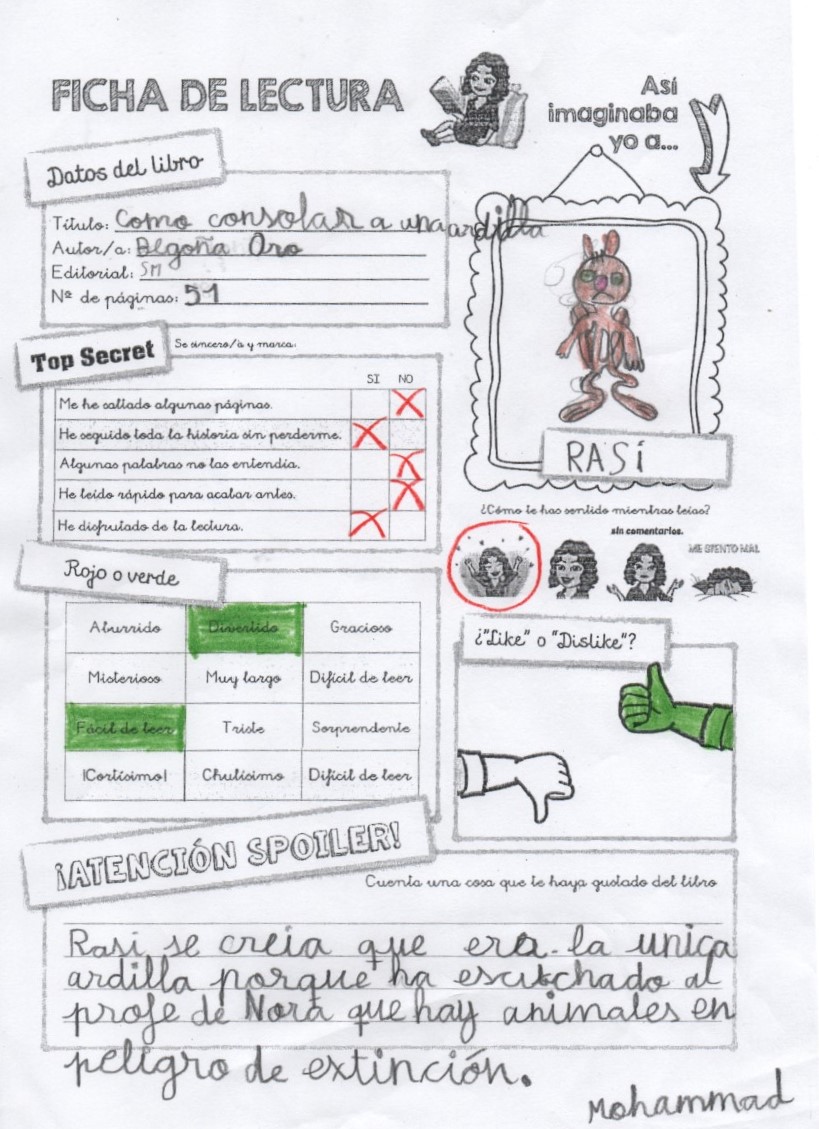 FICHA DE LECTURA
Así
imaginaba
yo a...
Datos del libro
Título: Como consolar a una ardilla
Autor/a: Begoña Oro
Editorial: SM
Nº de páginas: 51
Top Secret
Se sincero/a y marca:
SI NO
Me he saltado algunas páginas. X
He seguido toda la historia sin perderme. X
Algunas palabras no las entendía. X
He leído rápido para acabar antes. X
He disfrutado de la lectura. X
RASí
¿Cómo te has sentido mientras leías?
sin comentarios.
ME SIENTO MAL
Rojo o verde
Aburrido Divertido Gracioso
Misterioso Muy largo Difícil de leer
Fácil de leer Triste Sorprendente
¡Cortísimo! Chulísimo Difícil de leer
¿"Like" o "Dislike"?
¡ATENCIÓN SPOILER!
Cuenta una cosa que te haya gustado del libro
Rasi se creia que era la unica
ardilla porque ha escuchado al
profe de Nora que hay animales en
peligro de extinción.
Mohammad